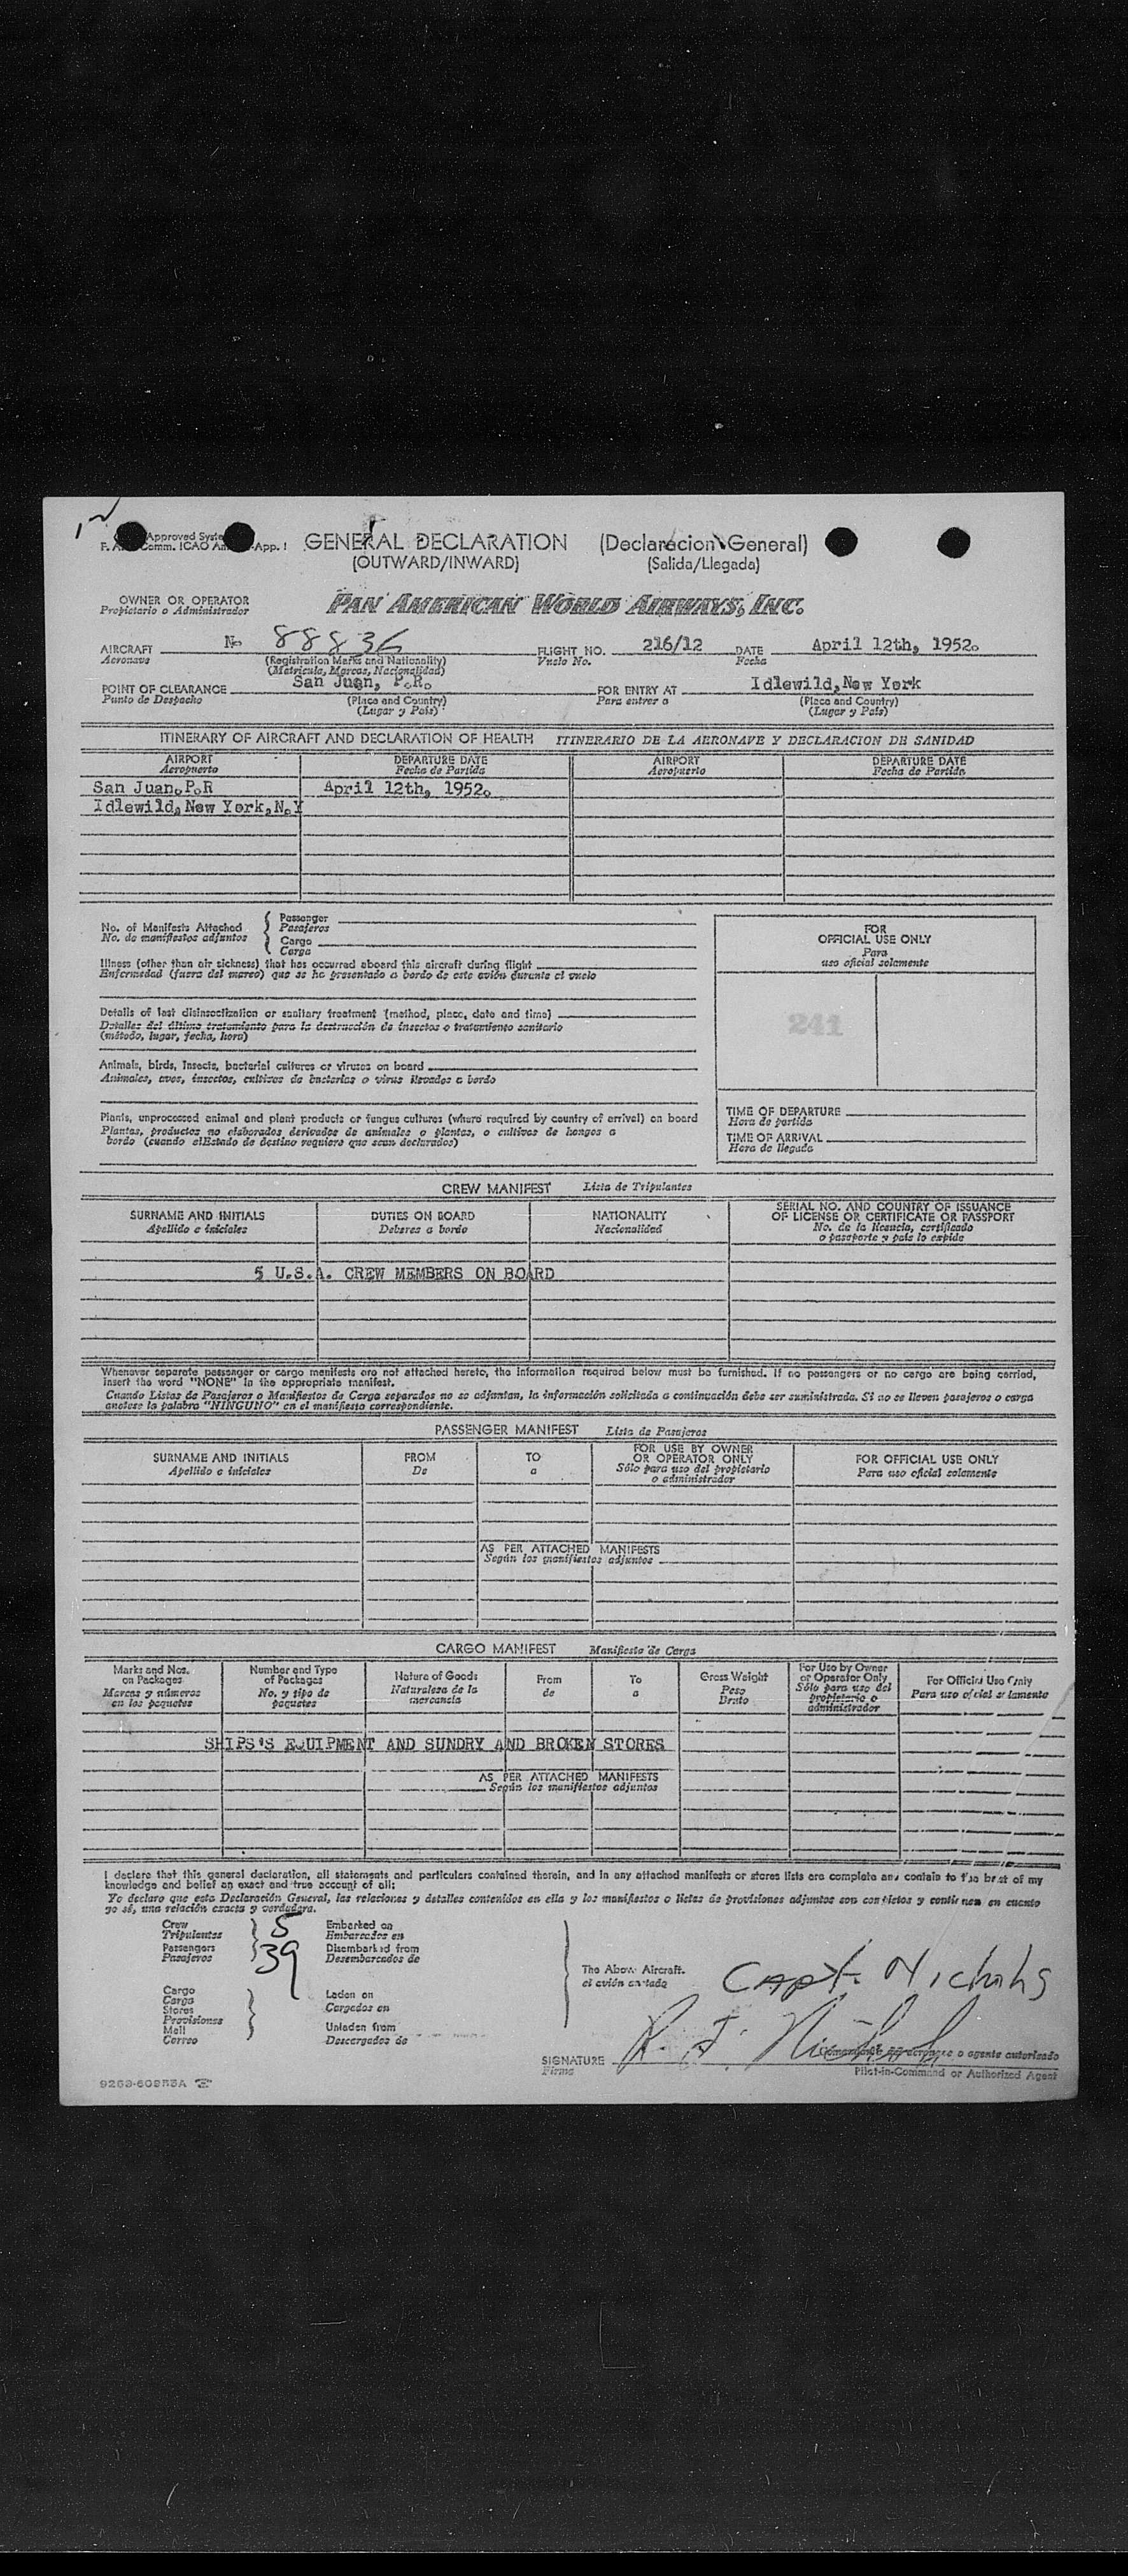 Approved Syste
F. A Comm. ICAO An -App. I
GENERAL DECLARATION (Declaracion General)
(OUTWARD/INWARD) (Salida/Llegada)
OWNER OR OPERATOR
Propietario o Administrador
PAN AMERICAN WORLD AIRWAYS, INC.
AIRCRAFT No 88836 FLIGHT NO. 216/12 DATE April 12th, 1952.
Aeronave (Registration Marks and Nationality) Vuelo No. Fecha
(Matricula, Marcas, Nacionalidad)
POINT OF CLEARANCE San Juan, P.R. FOR ENTRY AT Idlewild, New York
Punto de Despacho (Place and Country) Para entrar a (Place and Country)
(Lugar y País) (Lugar y País)
ITINERARY OF AIRCRAFT AND DECLARATION OF HEALTH ITINERARIO DE LA AERONAVE Y DECLARACION DE SANIDAD
AIRPORT DEPARTURE DATE AIRPORT DEPARTURE DATE
Aeropuerto Fecha de Partida Aeropuerto Fecha de Partida
San Juan.P.R April 12th, 1952.
Idlewild, New York,N.Y
No. of Manifests Attached
No. de manifiestos adjuntos
Passenger
Pasajeros
Cargo
Carga
Illness (other than air sickness) that has occurred aboard this aircraft during flight
Enfermedad (fuera del mareo) que se ha presentado a bordo de este avión durante el vuelo
Details of last disinsectization or sanitary treatment (method, place, date and time)
Detalles del último tratamiento para la destrucción de insectos o tratamiento sanitario
(método, lugar, fecha, hora)
Animals, birds, insects, bacterial cultures or viruses on board
Animales, aves, insectos, cultivos de bacterias o virus llevados a bordo
Plants, unprocessed animal and plant products or fungus cultures (where required by country of arrival) on board
Plantas, productos no elaborados derivados de animales o plantas, o cultivos de hongos a
bordo (cuando elEstado de destino requiera que sean declarados)
FOR
OFFICIAL USE ONLY
Para
uso oficial solamente
241
TIME OF DEPARTURE
Hora de partida
TIME OF ARRIVAL
Hora de llegada
CREW MANIFEST Lista de Tripulantes
SURNAME AND INITIALS DUTIES ON BOARD NATIONALITY SERIAL NO. AND COUNTRY OF ISSUANCE
OF LICENSE OR CERTIFICATE OR PASSPORT
Apellido e iniciales Deberes a bordo Nacionalidad No. de la licencia, certificado
o pasaporte y país lo expide
5 U.S.A. CREW MEMBERS ON BOARD
Whenever separate passenger or cargo manifests are not attached hereto, the information required below must be furnished. If no passengers or no cargo are being carried,
insert the word "NONE" in the appropriate manifest.
Cuando Listas de Pasajeros o Manifiestos de Carga separados no se adjuntan, la información solicitada a continuación debe ser suministrada. Si no se lleven pasajeros o carga
anótese la palabra "NINGUNO" en el manifiesto correspondiente.
PASSENGER MANIFEST Lista de Pasajeros
SURNAME AND INITIALS FROM TO FOR USE BY OWNER OR OPERATOR ONLY FOR OFFICIAL USE ONLY
Apellido e iniciales De a Sólo para uso del propietario o administrador Para uso oficial solamente
AS PER ATTACHED MANIFESTS
Según los manifiestos adjuntos
CARGO MANIFEST Manifiesto de Carga
Marks and Nos. on Packages Number and Type of Packages Nature of Goods From To Gross Weight For Use by Owner or Operator Only For Official Use Only
Marcas y números en los paquetes No. y tipo de paquetes Naturaleza de la mercancia de a Peso Bruto Sólo para uso del propietario o administrador Para uso oficial solamente
SHIPS'S EQUIPMENT AND SUNDRY AND BROKEN STORES
AS PER ATTACHED MANIFESTS
Según los manifiestos adjuntos
I declare that this general declaration, all statements and particulars contained therein, and in any attached manifests or stores lists are complete and contain to the best of my
knowledge and belief an exact and true account of all:
Yo declaro que esta Declaración General, las relaciones y detalles contenidos en ella y los manifiestos o listas de provisiones adjuntos son completos y contienen en cuanto
yo sé, una relación exacta y verdadera.
Crew 5 Embarked on
Tripulantes Embarcados en
Passengers 39 Disembarked from
Pasajeros Desembarcados de
The Above Aircraft.
el avión citado
Capt. Nichols
Cargo Laden on
Carga Cargados en
Stores
Provisiones
Mail Unladen from
Correo Descargados de
SIGNATURE R. F. Nichols
Firma
o agente autorizado
Pilot-in-Command or Authorized Agent